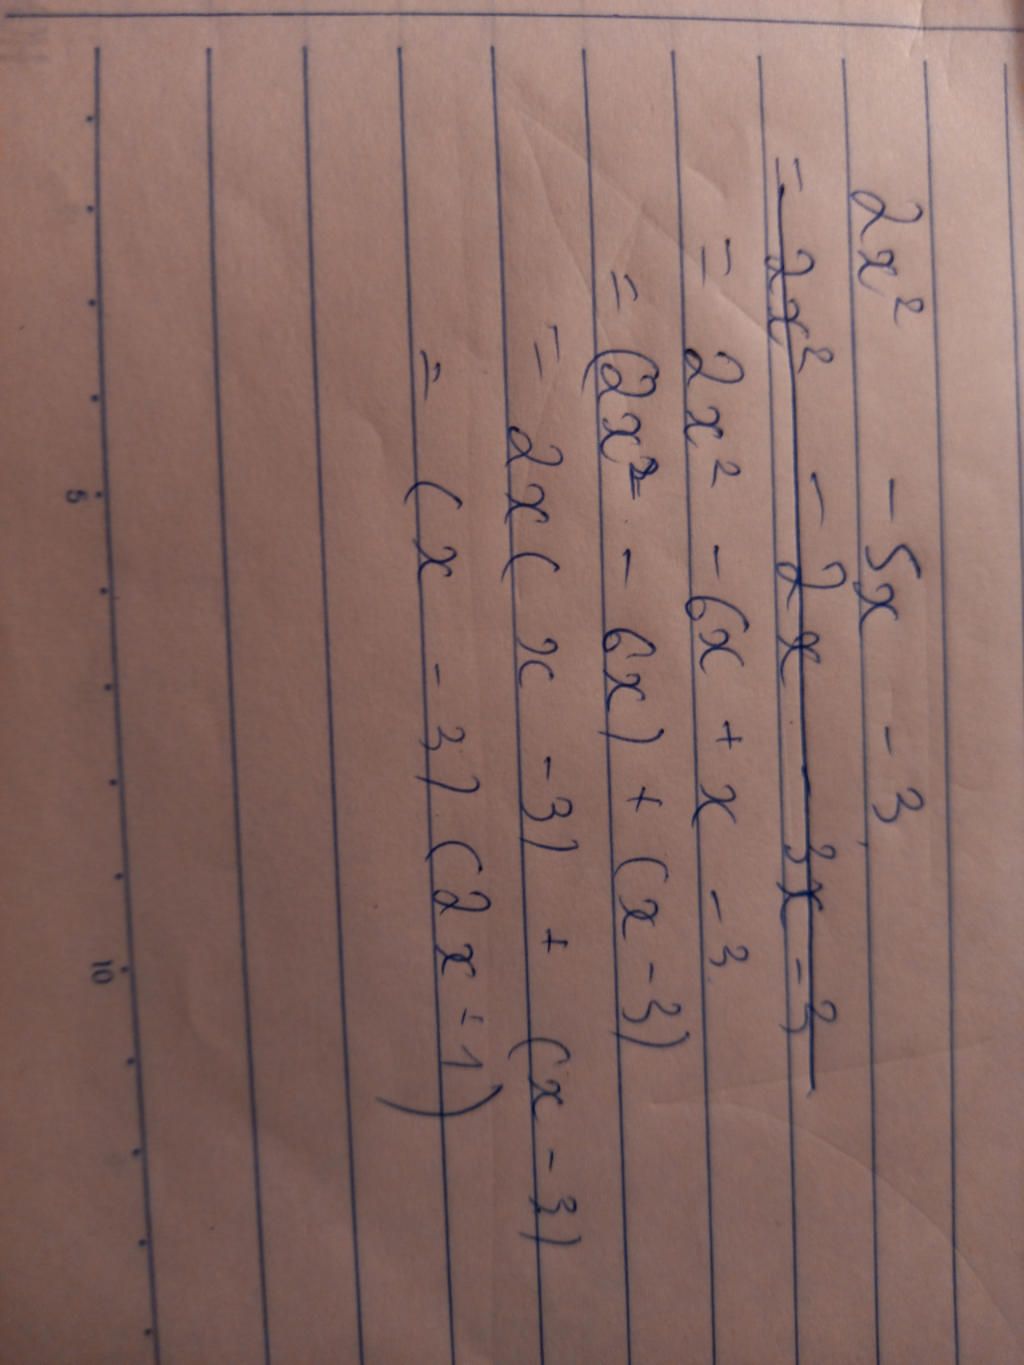 2x² - 5x - 3
= 2x² - 2x - 3x - 3
= 2x² - 6x + x - 3
= (2x² - 6x) + (x - 3)
= 2x(x - 3) + (x - 3)
= (x - 3)(2x - 1)
5
10